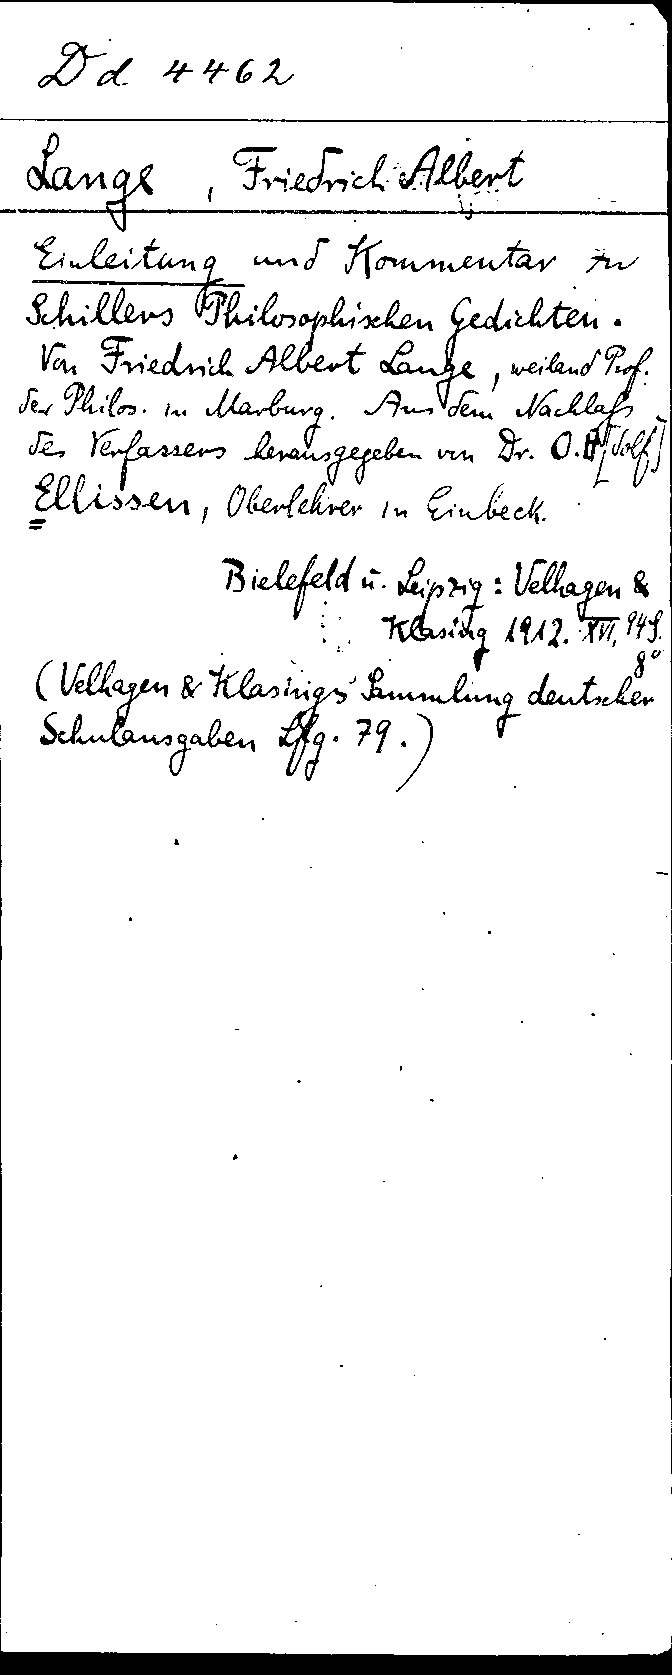 Dd 4462
Lange, Friedrich Albert
Einleitung und Kommentar zu
Schillers Philosophischen Gedichten.
Von Friedrich Albert Lange, weiland Prof.
der Philos. in Marburg. Aus dem Nachlaß
des Verfassers herausgegeben von Dr. O. A[dolf]
Ellissen, Oberlehrer in Einbeck.
Bielefeld u. Leipzig: Velhagen &
Klasing 1912. XVI, 94 S.
8°
(Velhagen & Klasings Sammlung deutscher
Schulausgaben Lfg. 79.)